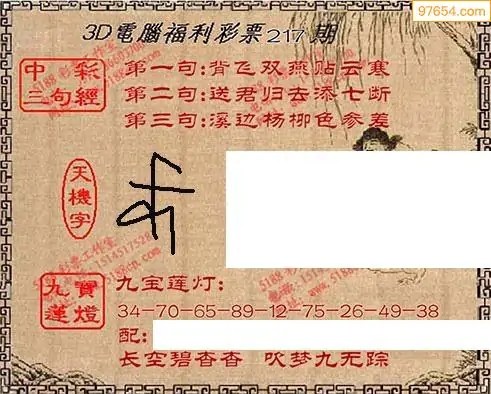 97654.com
3D電腦福利彩票217期
中彩
三句經
第一句:背飞双燕贴云寒
第二句:送君归去添七断
第三句:溪边杨柳色参差
天機字
九寶
蓮燈
九宝莲灯:
34-70-65-89-12-75-26-49-38
配:
长空碧杳杳 吹梦九无踪